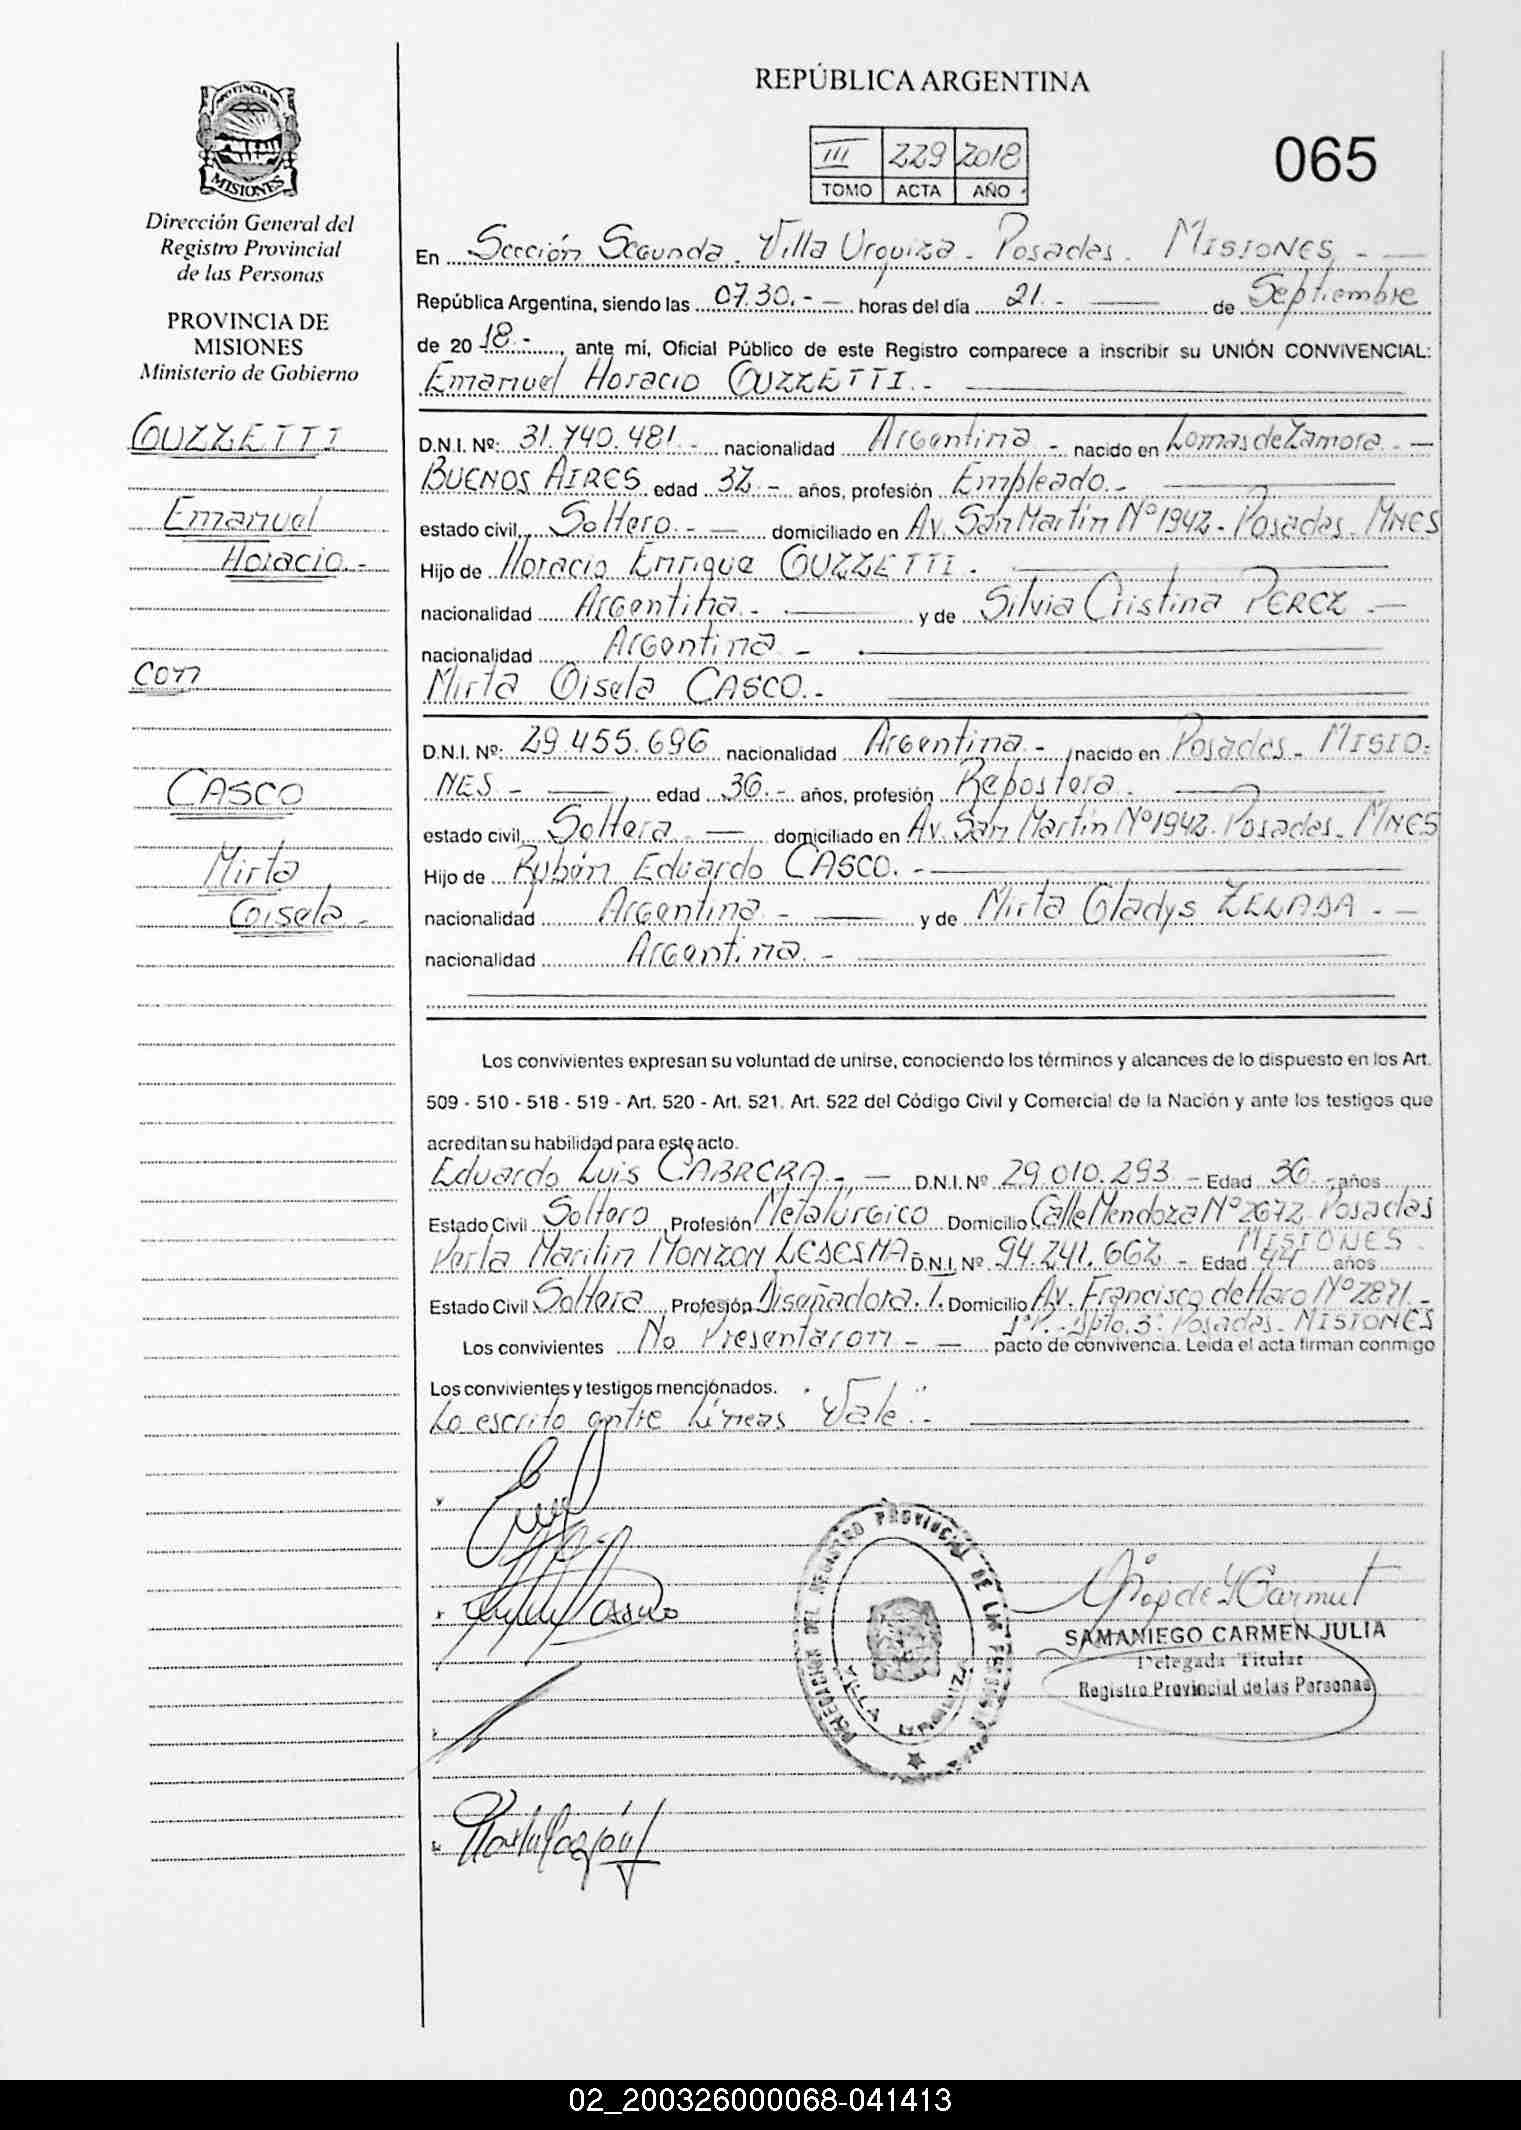 REPÚBLICA ARGENTINA
III 229 2018
TOMO ACTA AÑO
065
PROVINCIA DE
MISIONES
Dirección General del
Registro Provincial
de las Personas
PROVINCIA DE
MISIONES
Ministerio de Gobierno
GUZZETTI
Emanuel
Horacio.-
con
CASCO
Mirta
Gisela.-
En Sección Segunda. Villa Urquiza. Posadas. MISIONES. -
República Argentina, siendo las 07.30.- horas del día 21.- de Septiembre
de 2018.-, ante mí, Oficial Público de este Registro comparece a inscribir su UNIÓN CONVIVENCIAL:
Emanuel Horacio GUZZETTI.-
D.N.I. Nº: 31.740.481.- nacionalidad Argentina.- nacido en Lomas de Zamora.-
BUENOS AIRES edad 32.- años, profesión Empleado.-
estado civil Soltero.- domiciliado en Av. San Martín Nº 1942. Posadas. MNES
Hijo de Horacio Enrique GUZZETTI.
nacionalidad Argentina.- y de Silvia Cristina PEREZ.-
nacionalidad Argentina -
Mirta Gisela CASCO.-
D.N.I. Nº: 29.455.696 nacionalidad Argentina.- nacido en Posadas. MISIO-
NES - edad 36.- años, profesión Repostera.
estado civil Soltera.- domiciliado en Av. San Martín Nº 1942. Posadas. MNES
Hijo de Rubén Eduardo CASCO.-
nacionalidad Argentina.- y de Mirta Gladys ZELADA.-
nacionalidad Argentina.-
Los convivientes expresan su voluntad de unirse, conociendo los términos y alcances de lo dispuesto en los Art.
509 - 510 - 518 - 519 - Art. 520 - Art. 521. Art. 522 del Código Civil y Comercial de la Nación y ante los testigos que
acreditan su habilidad para este acto.
Eduardo Luis CABRERA.- D.N.I. Nº 29.010.293.- Edad 36.- años
Estado Civil Soltero Profesión Metalúrgico Domicilio Calle Mendoza Nº 2672 Posadas
MISIONES.
Perla Marilin MONZON LEDESMA- D.N.I. Nº 94.241.662 - Edad 44 años
Estado Civil Soltera Profesión Diseñadora. I. Domicilio Av. Francisco de Haro Nº 2871.-
1ºP.-Dpto.3. Posadas. MISIONES
Los convivientes No Presentaron - pacto de convivencia. Leída el acta firman conmigo
Los convivientes y testigos mencionados.
Lo escrito entre líneas "Vale".-
Casco
DELEGACION DEL REGISTRO PROVINCIAL DE LAS PERSONAS
VILLA URQUIZA
SAMANIEGO CARMEN JULIA
Delegada Titular
Registro Provincial de las Personas
02_200326000068-041413